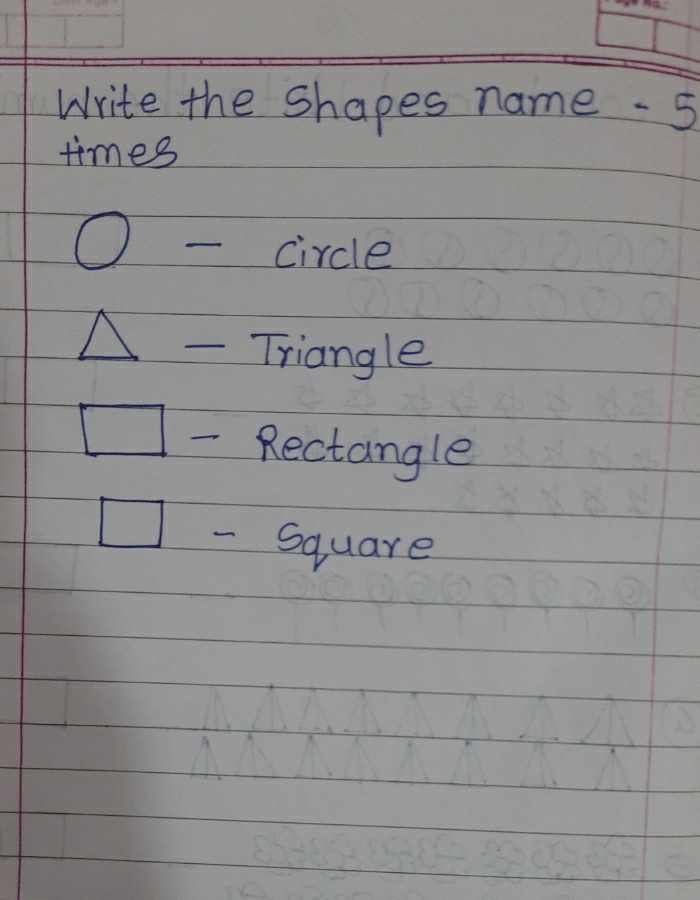 Write the Shapes name - 5
times
- circle
- Triangle
- Rectangle
- Square